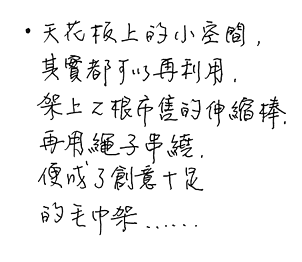 •天花板上的小空間，
其實都可以再利用，
架上2根市售的伸縮棒，
再用繩子串繞，
便成了創意十足
的毛巾架……